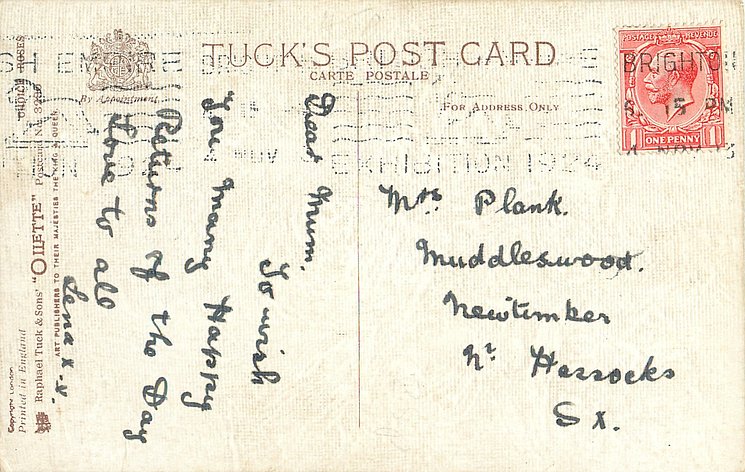 TUCK'S POST CARD
CARTE POSTALE
By Appointment
FOR ADDRESS ONLY
POSTAGE REVENUE
ONE PENNY
1 1
BRIGHTON
5. 15 PM
EMPIRE
EXHIBITION 1924
Dear Mum.
To wish
You Many Happy
Returns of the Day
Love to all
Lena x.x.
Mrs Plank.
Muddleswood.
Newtimber
Nr Hassocks
Sx.
ROSES
Raphael Tuck & Sons' "OILETTE" Postcard No.
ART PUBLISHERS TO THEIR MAJESTIES THE KING & QUEEN
Printed in England
Copyright London